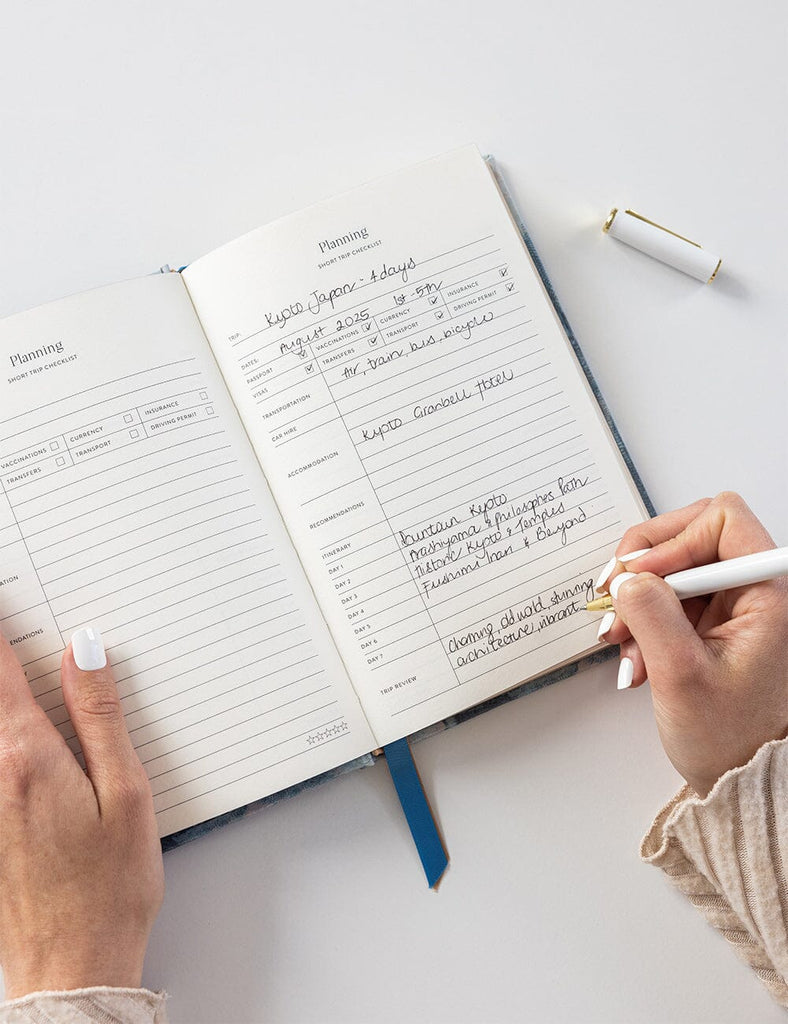 Planning
SHORT TRIP CHECKLIST
VACCINATIONS CURRENCY INSURANCE
TRANSFERS TRANSPORT DRIVING PERMIT
Planning
SHORT TRIP CHECKLIST
TRIP: Kyoto Japan - 4 days
DATES: August 2025 1st - 5th
PASSPORT VACCINATIONS CURRENCY INSURANCE
VISAS TRANSFERS TRANSPORT DRIVING PERMIT
TRANSPORTATION Air, train, bus, bicycle
CAR HIRE
ACCOMMODATION Kyoto Granbell Hotel
RECOMMENDATIONS
ITINERARY
DAY 1 Kyoto
DAY 2 Arashiyama & Philosophes Path
DAY 3 Historic Kyoto & Temples
DAY 4 Fushimi Inari & Beyond.
DAY 5
DAY 6
DAY 7
TRIP REVIEW charming, old world, stunning
architecture, vibrant